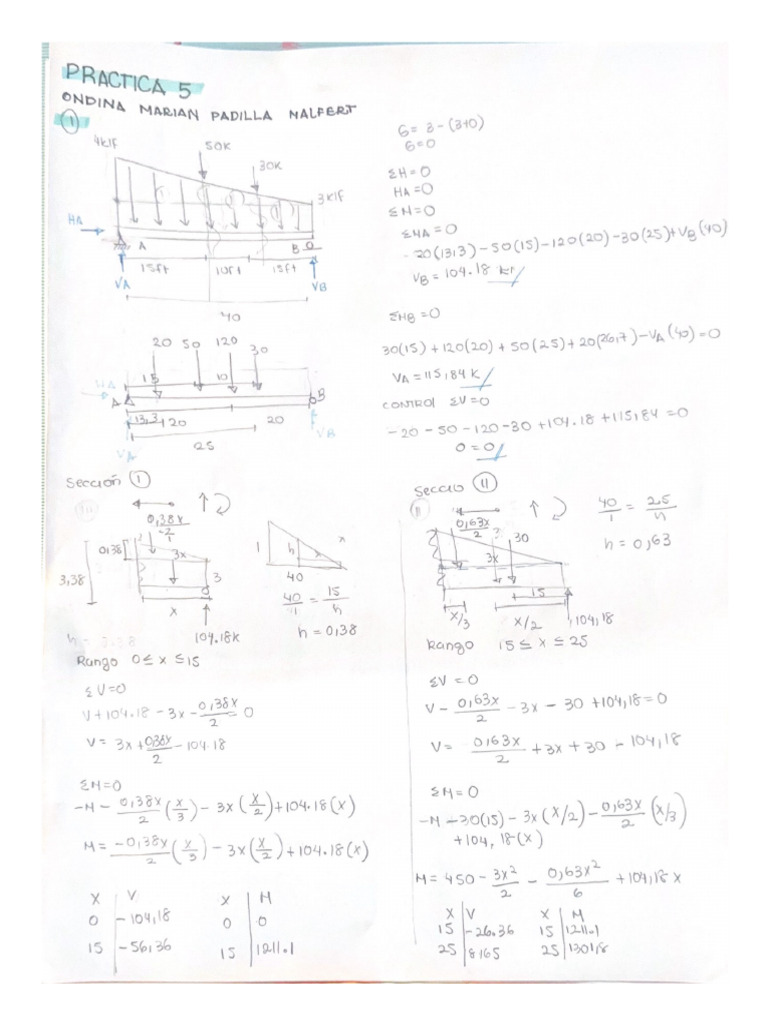 PRACTICA 5
ONDINA MARIAN PADILLA MALFERT
1
4klf
50K
30K
3klf
HA
A
B
15ft
10ft
15ft
VA
VB
40
20 50 120 30
15
10
A
B
13,3
20
20
VB
25
VA
Sección I
0,38x
2
0,38
3x
3,38
3
x
104.18k
1
h
x
40
40/1 = 15/h
h = 0,38
Rango 0 ≤ x ≤ 15
ΣV=0
V + 104.18 - 3x - 0,38x/2 = 0
V = 3x + 0,38x/2 - 104.18
ΣM=0
-M - 0,38x/2 (x/3) - 3x (x/2) + 104.18 (x)
M = -0,38x/2 (x/3) - 3x (x/2) + 104.18 (x)
X V
0 -104,18
15 -56,36
X M
0 0
15 1211.1
G = 3 - (3+0)
G=0
ΣH=0
HA=0
ΣM=0
ΣMA=0
-20(13,3) - 50(15) - 120(20) - 30(25) + VB(40)
VB = 104.18
ΣMB=0
30(15) + 120(20) + 50(25) + 20(26,7) - VA(40) = 0
VA = 115,84 k
CONTROL ΣV=0
-20 - 50 - 120 - 30 + 104.18 + 115,84 = 0
0 = 0
Seccio II
0,63x
2
30
3x
15
x/3
x/2
104,18
40/1 = 25/h
h = 0,63
Rango 15 ≤ x ≤ 25
ΣV = 0
V - 0,63x/2 - 3x - 30 + 104,18 = 0
V = 0,63x/2 + 3x + 30 - 104,18
ΣM=0
-M - 30(15) - 3x (x/2) - 0,63x/2 (x/3)
+104,18(x)
M = 450 - 3x²/2 - 0,63x²/6 + 104,18 x
X V
15 -26.36
25 8,165
X M
15 1211.1
25 1301,8